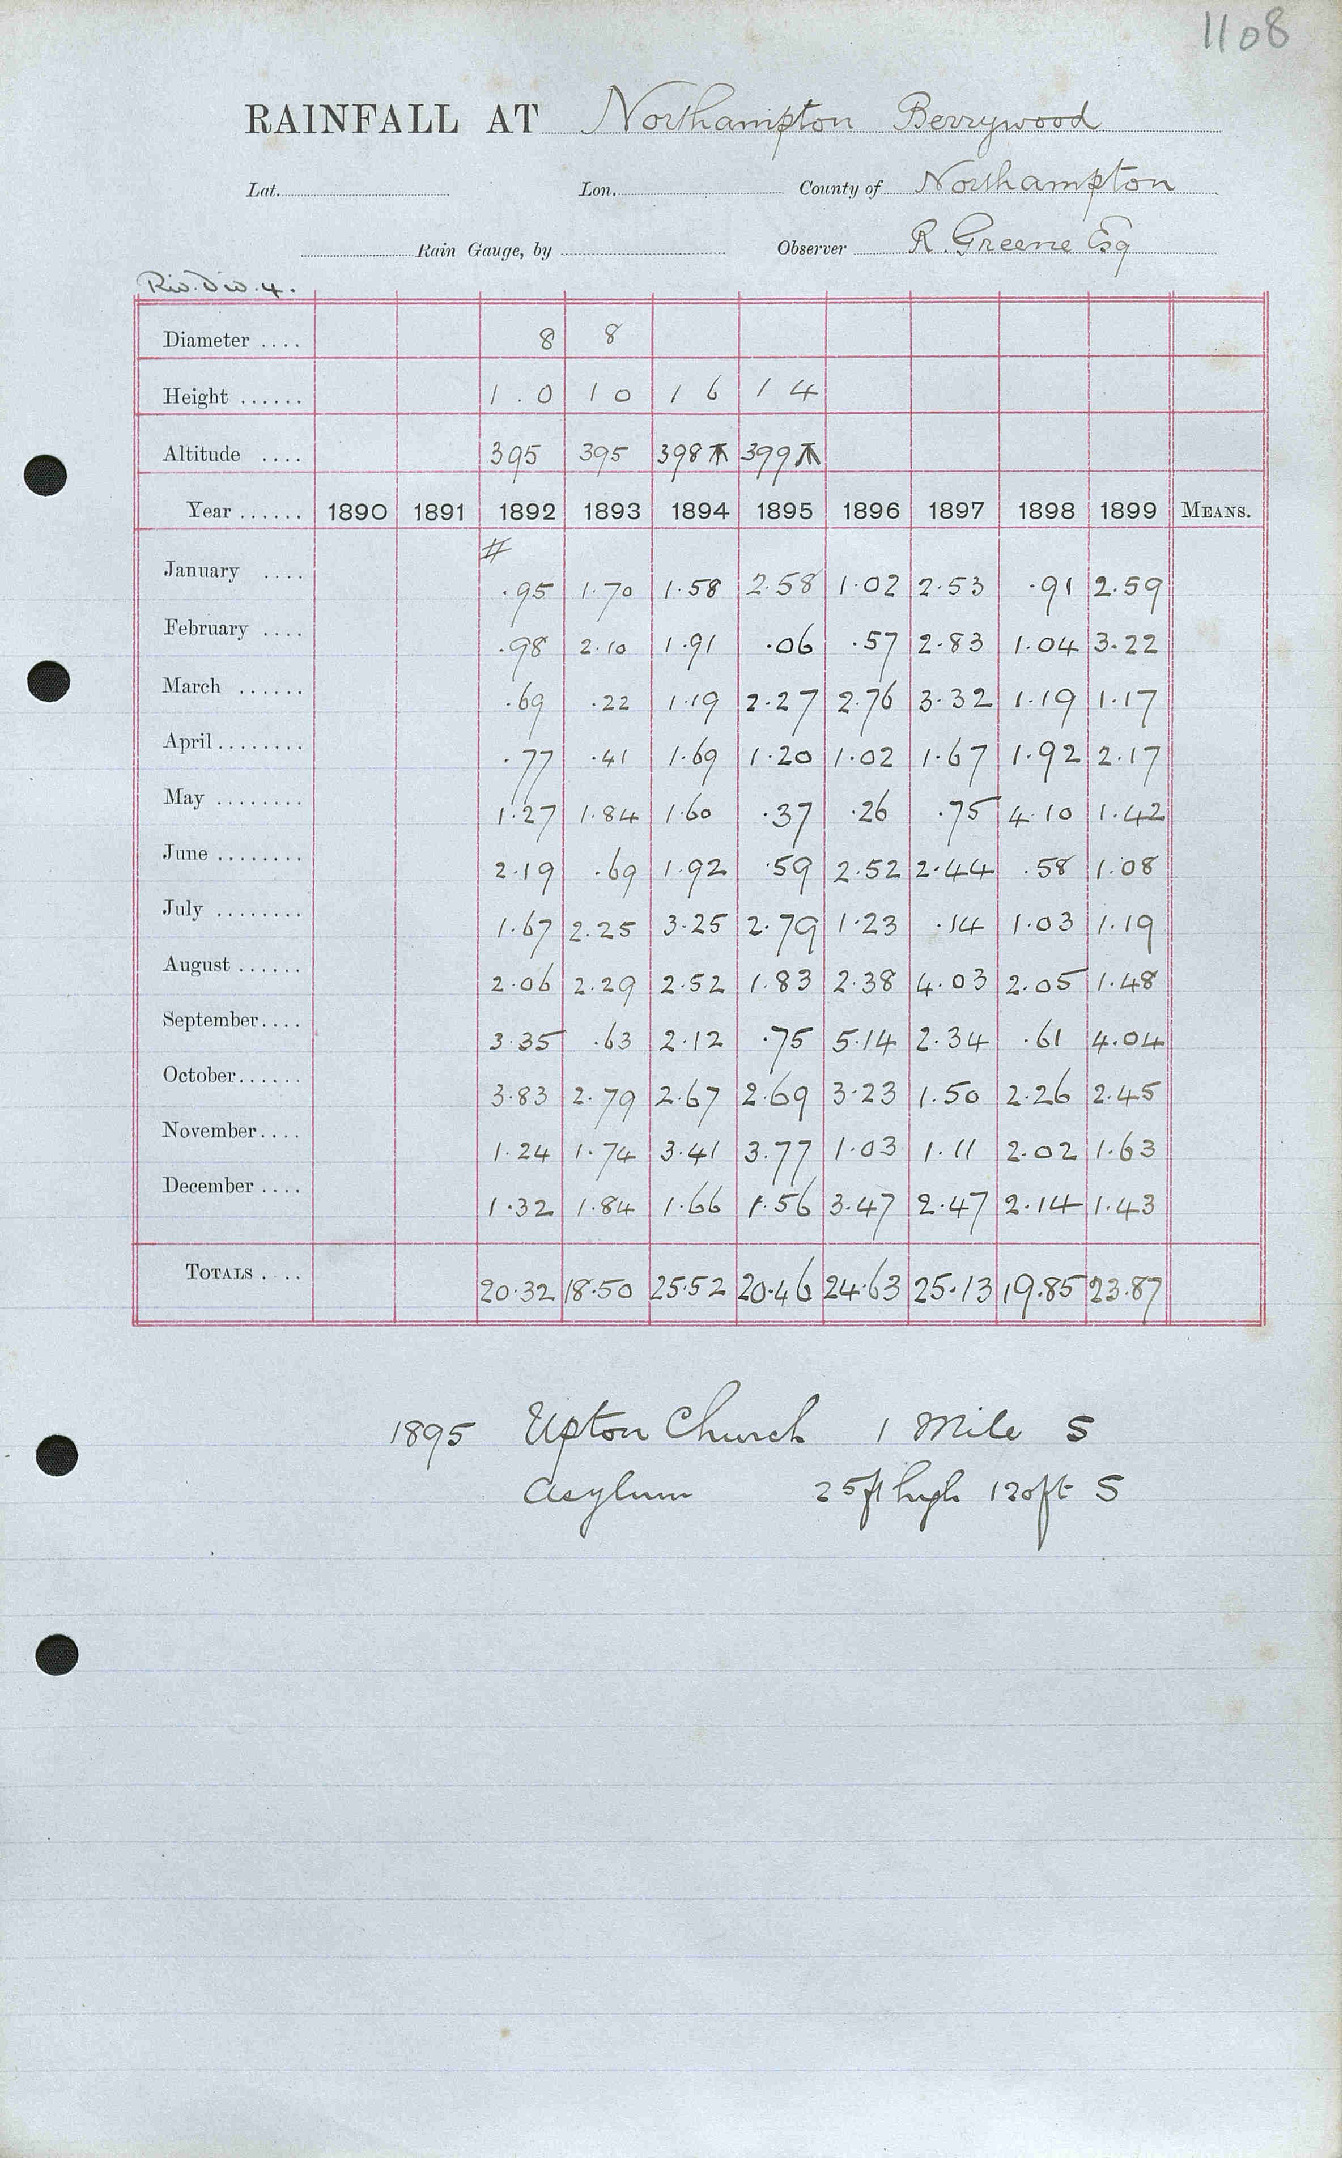 1108
RAINFALL AT Northampton Berrywood
Lat. Lon. County of Northampton
Rain Gauge, by Observer R. Greene Esq
Riv. Div. 4.
Diameter .... 8 8
Height ...... 1.0 1 0 1 6 1 4
Altitude .... 395 395 398 399
Year ...... 1890 1891 1892 1893 1894 1895 1896 1897 1898 1899 MEANS.
#
January .... .95 1.70 1.58 2.58 1.02 2.53 .91 2.59
February .... .98 2.10 1.91 .06 .57 2.83 1.04 3.22
March ...... .69 .22 1.19 2.27 2.76 3.32 1.19 1.17
April ........ .77 .41 1.69 1.20 1.02 1.67 1.92 2.17
May ........ 1.27 1.84 1.60 .37 .26 .75 4.10 1.42
June ........ 2.19 .69 1.92 .59 2.52 2.44 .58 1.08
July ........ 1.67 2.25 3.25 2.79 1.23 .14 1.03 1.19
August ...... 2.06 2.29 2.52 1.83 2.38 4.03 2.05 1.48
September.... 3.35 .63 2.12 .75 5.14 2.34 .61 4.04
October...... 3.83 2.79 2.67 2.69 3.23 1.50 2.26 2.45
November.... 1.24 1.74 3.41 3.77 1.03 1.11 2.02 1.63
December .... 1.32 1.84 1.66 1.56 3.47 2.47 2.14 1.43
TOTALS .... 20.32 18.50 25.52 20.46 24.63 25.13 19.85 23.87
1895 Upton Church 1 Mile S
Asylum 25ft high 120ft S